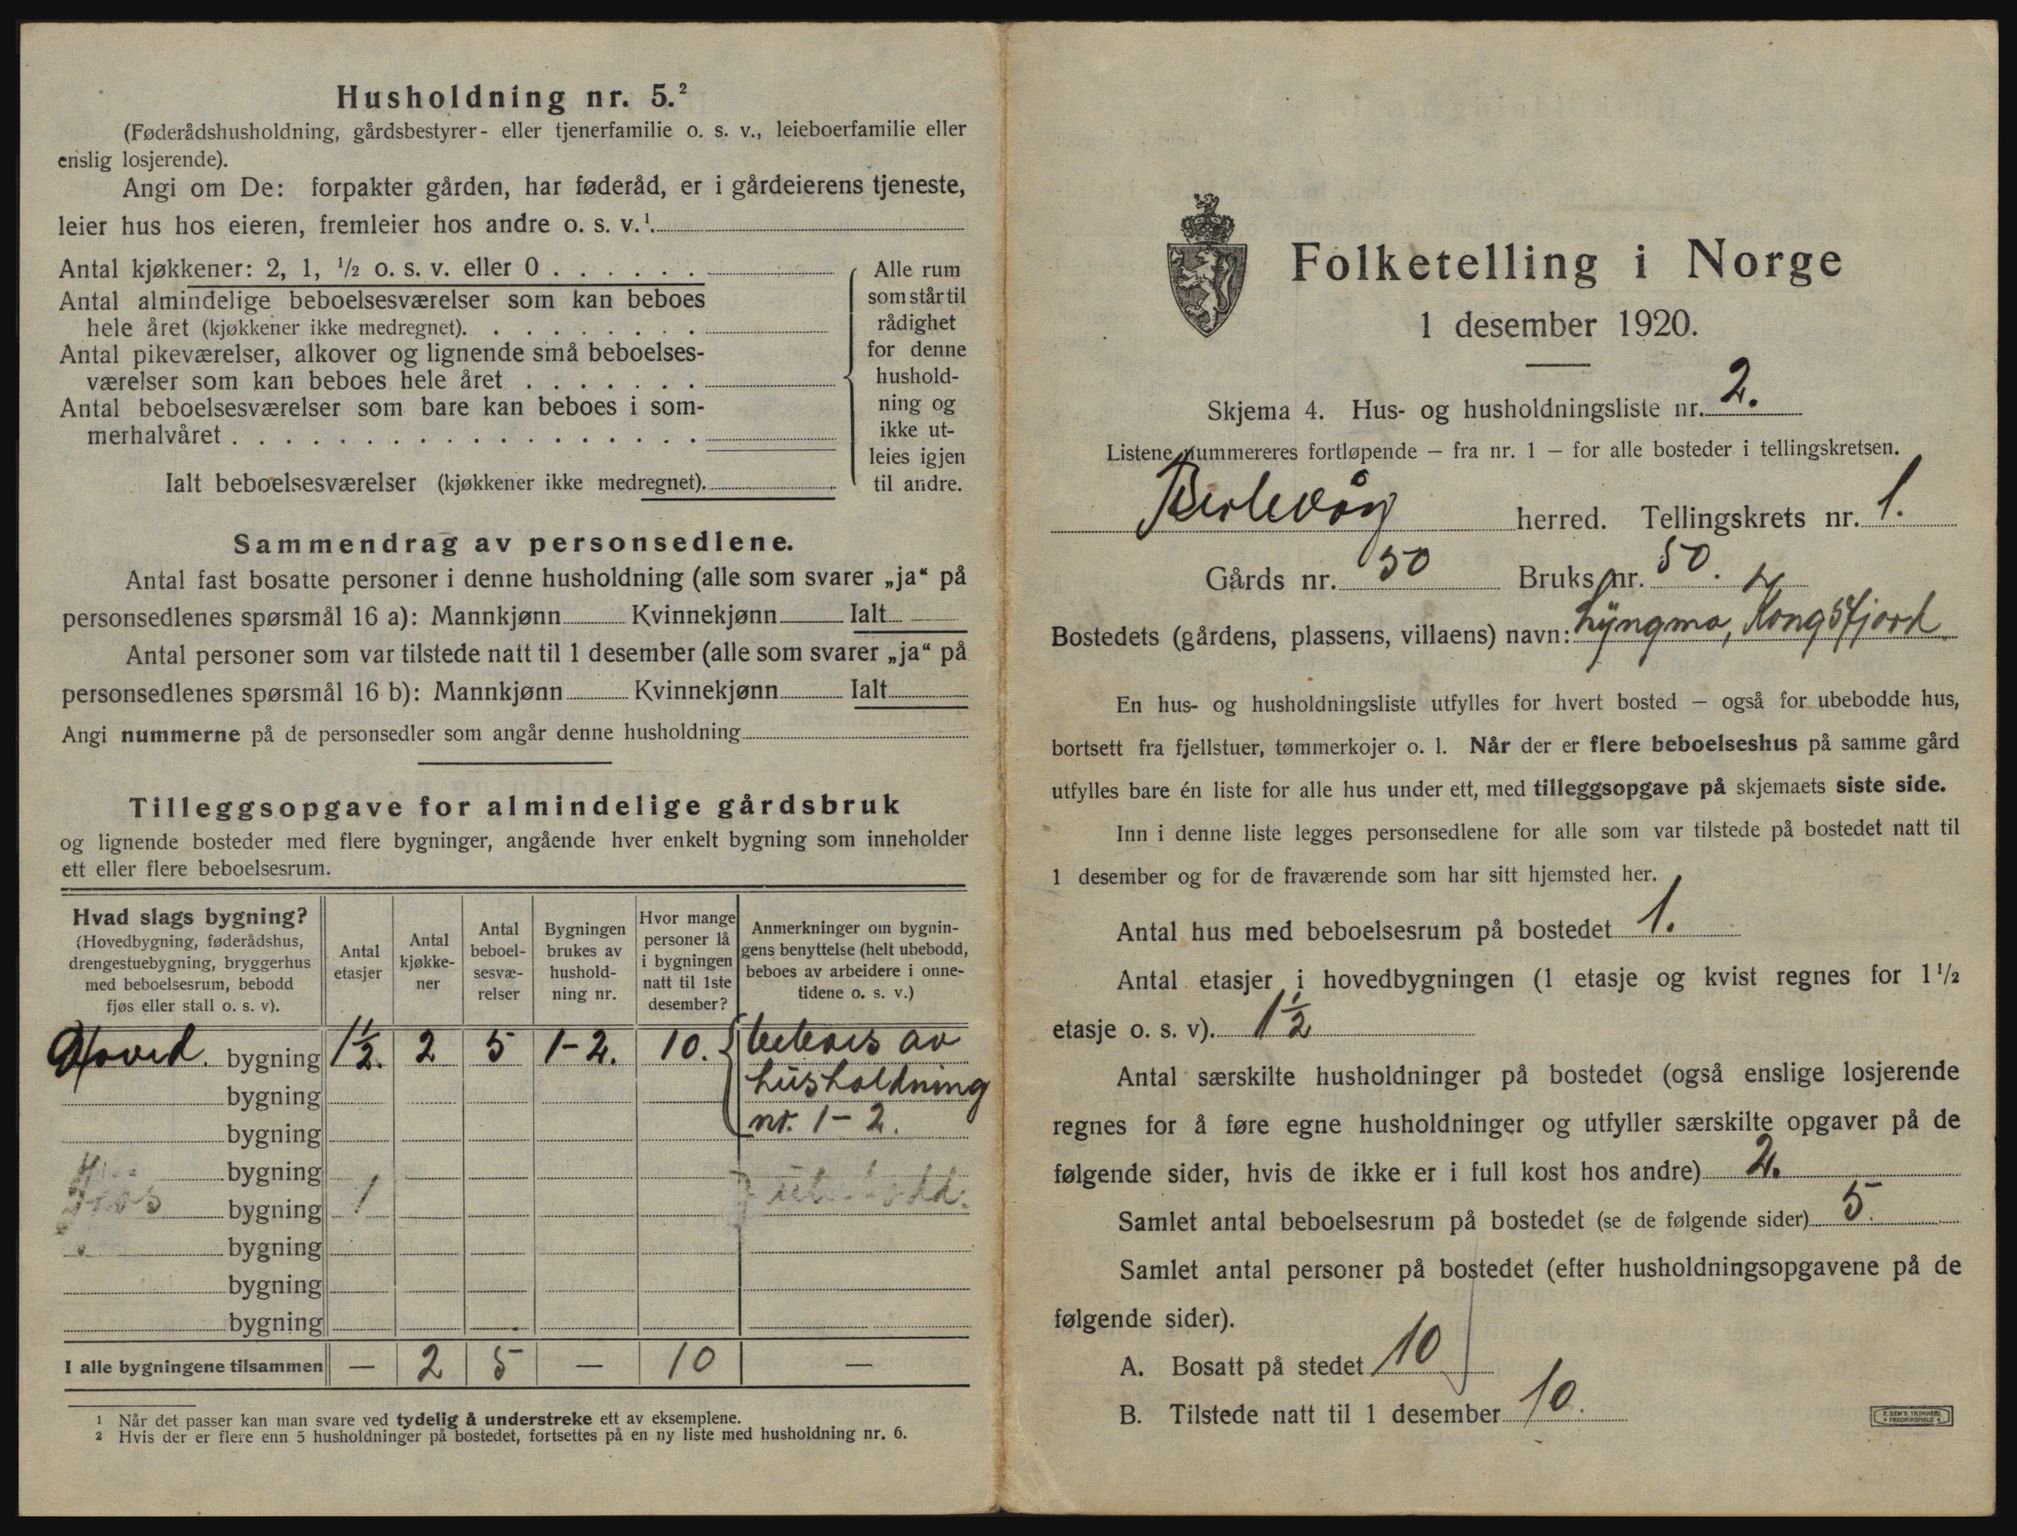 Husholdning nr. 5.²
(Føderådshusholdning, gårdsbestyrer- eller tjenerfamilie o. s. v., leieboerfamilie eller
enslig losjerende).
Angi om De: forpakter gården, har føderåd, er i gårdeierens tjeneste,
leier hus hos eieren, fremleier hos andre o. s. v.¹.
Antal kjøkkener: 2, 1, ½ o. s. v. eller 0 . . . . . .
Antal almindelige beboelsesværelser som kan beboes
hele året (kjøkkener ikke medregnet). . . . . . . . .
Antal pikeværelser, alkover og lignende små beboelses-
værelser som kan beboes hele året . . . . . . .
Antal beboelsesværelser som bare kan beboes i som-
merhalvåret . . . . . . . . . . . . . . . . . .
Ialt beboelsesværelser (kjøkkener ikke medregnet).
Alle rum
som står til
rådighet
for denne
hushold-
ning og
ikke ut-
leies igjen
til andre.
Sammendrag av personsedlene.
Antal fast bosatte personer i denne husholdning (alle som svarer „ja“ på
personsedlenes spørsmål 16 a): Mannkjønn Kvinnekjønn Ialt
Antal personer som var tilstede natt til 1 desember (alle som svarer „ja“ på
personsedlenes spørsmål 16 b): Mannkjønn Kvinnekjønn Ialt
Angi nummerne på de personsedler som angår denne husholdning
Tilleggsopgave for almindelige gårdsbruk
og lignende bosteder med flere bygninger, angående hver enkelt bygning som inneholder
ett eller flere beboelsesrum.
Hvad slags bygning?
(Hovedbygning, føderådshus,
drengestuebygning, bryggerhus
med beboelsesrum, bebodd
fjøs eller stall o. s. v).
Antal
etasjer
Antal
kjøkke-
ner
Antal
beboel-
sesvæ-
relser
Bygningen
brukes av
hushold-
ning nr.
Hvor mange
personer lå
i bygningen
natt til 1ste
desember?
Anmerkninger om bygnin-
gens benyttelse (helt ubebodd,
beboes av arbeidere i onne-
tidene o. s. v.)
Hoved. bygning 1½. 2 5 1-2. 10. beboes av
bygning husholdning
bygning nr. 1-2.
bygning
Fjøs bygning 1
bygning
bygning
bygning
I alle bygningene tilsammen — 2 5 — 10 —
¹ Når det passer kan man svare ved tydelig å understreke ett av eksemplene.
² Hvis der er flere enn 5 husholdninger på bostedet, fortsettes på en ny liste med husholdning nr. 6.
Folketelling i Norge
1 desember 1920.
Skjema 4. Hus- og husholdningsliste nr. 2.
Listene nummereres fortløpende — fra nr. 1 — for alle bosteder i tellingskretsen.
Berlevåg herred. Tellingskrets nr. 1.
Gårds nr. 50 Bruks nr. 50.
Bostedets (gårdens, plassens, villaens) navn: Lyngmo, Kongsfjord
En hus- og husholdningsliste utfylles for hvert bosted — også for ubebodde hus,
bortsett fra fjellstuer, tømmerkojer o. l. Når der er flere beboelseshus på samme gård
utfylles bare én liste for alle hus under ett, med tilleggsopgave på skjemaets siste side.
Inn i denne liste legges personsedlene for alle som var tilstede på bostedet natt til
1 desember og for de fraværende som har sitt hjemsted her.
Antal hus med beboelsesrum på bostedet 1.
Antal etasjer i hovedbygningen (1 etasje og kvist regnes for 1½
etasje o. s. v). 1½
Antal særskilte husholdninger på bostedet (også enslige losjerende
regnes for å føre egne husholdninger og utfyller særskilte opgaver på de
følgende sider, hvis de ikke er i full kost hos andre) 2.
Samlet antal beboelsesrum på bostedet (se de følgende sider) 5.
Samlet antal personer på bostedet (efter husholdningsopgavene på de
følgende sider).
A. Bosatt på stedet 10
B. Tilstede natt til 1 desember 10.